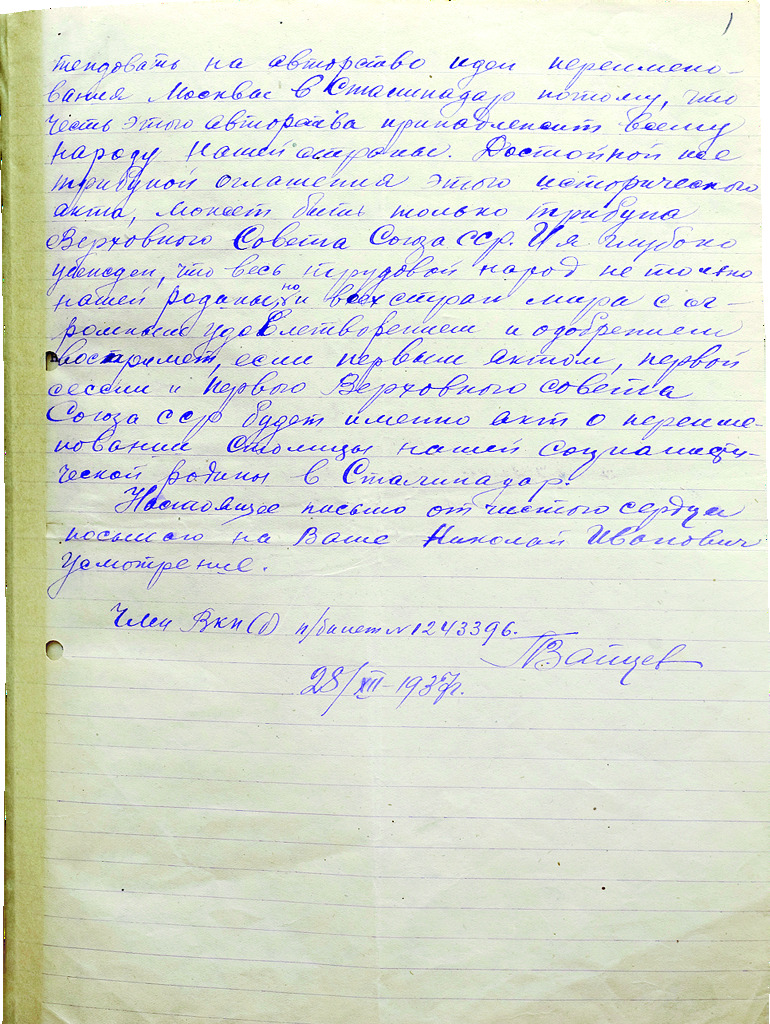 1
тендовать на авторство идеи переимено-
вания Москвы в Сталинадар потому, что
честь этого авторства принадлежит всему
народу нашей страны. Достойной же
трибуной оглашения этого исторического
акта, может быть только трибуна
Верховного Совета Союза ССР. И я глубоко
убежден, что весь трудовой народ не только
нашей родины, но и всех стран мира с ог-
ромным удовлетворением и одобрением
воспримет, если первым актом, первой
сессии и первого Верховного совета
Союза ССР будет именно акт о переиме-
новании столицы нашей социалисти-
ческой родины в Сталинадар.
Настоящее письмо от чистого сердца
посылаю на Ваше Николай Иванович
усмотрение.
Член ВКП(б) п/билет № 1243396.
Зайцев
28/XII-1937г.